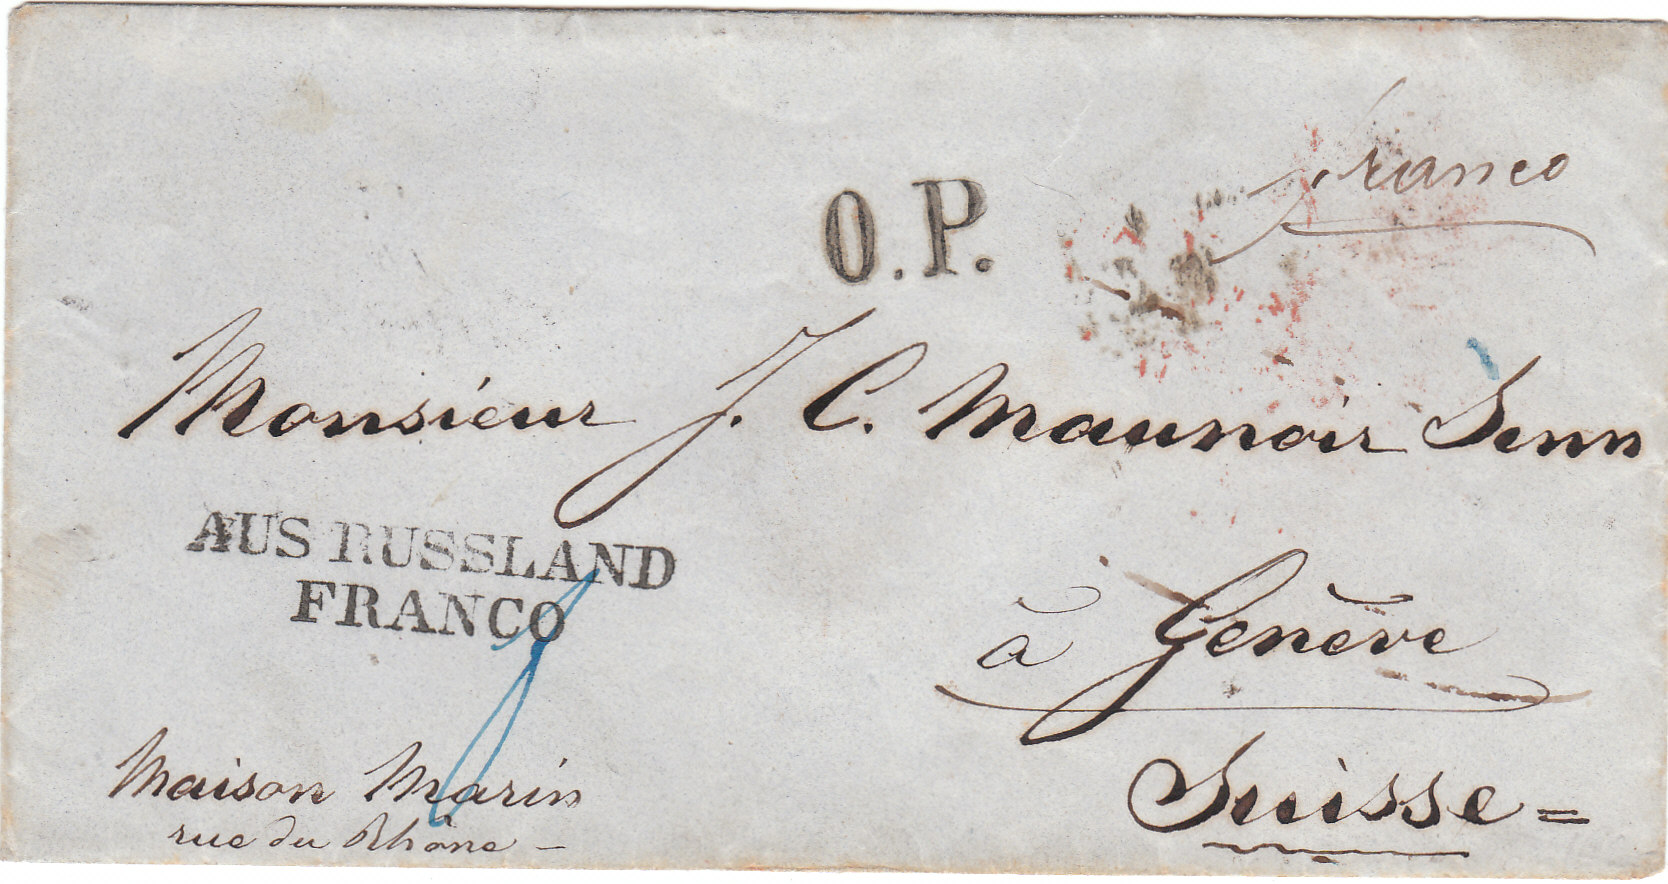 franco
O.P.
Monsieur J. C. Maunoir Senn
AUS RUSSLAND
FRANCO
à Genève
Suisse =
Maison Marin
rue du Rhône –